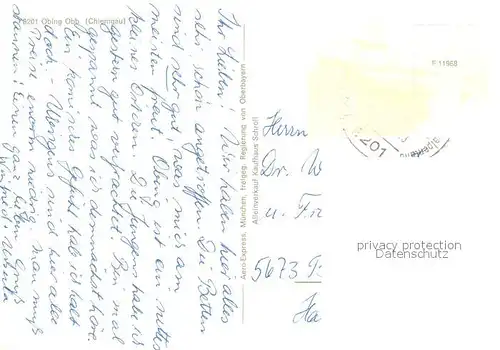 8201 Obing Obb. (Chiemgau)
Ihr Lieben! Wir haben hier alles
sehr schön angetroffen. Die Betten
sind sehr gut, was mich am
meisten freut. Obing ist ein nettes
kleines Örtchen. Die Jungens habe ich
gestern gut verfrachtet. Bin mal
gespannt was ich demnächst höre.
Ein komisches Gefühl hab ich halt
doch. – Übrigens sind hier alle
Preise enorm niedrig. Man muß
staunen! Euren ganz lieben Gruß
Winfried, Ursula
Aero-Express, München, freigeg. Regierung von Oberbayern
Alleinverkauf Kaufhaus Schroll
F 11968
8201
Herrn
Dr. W
u. Fr
5673
Ha
privacy protection
Datenschutz